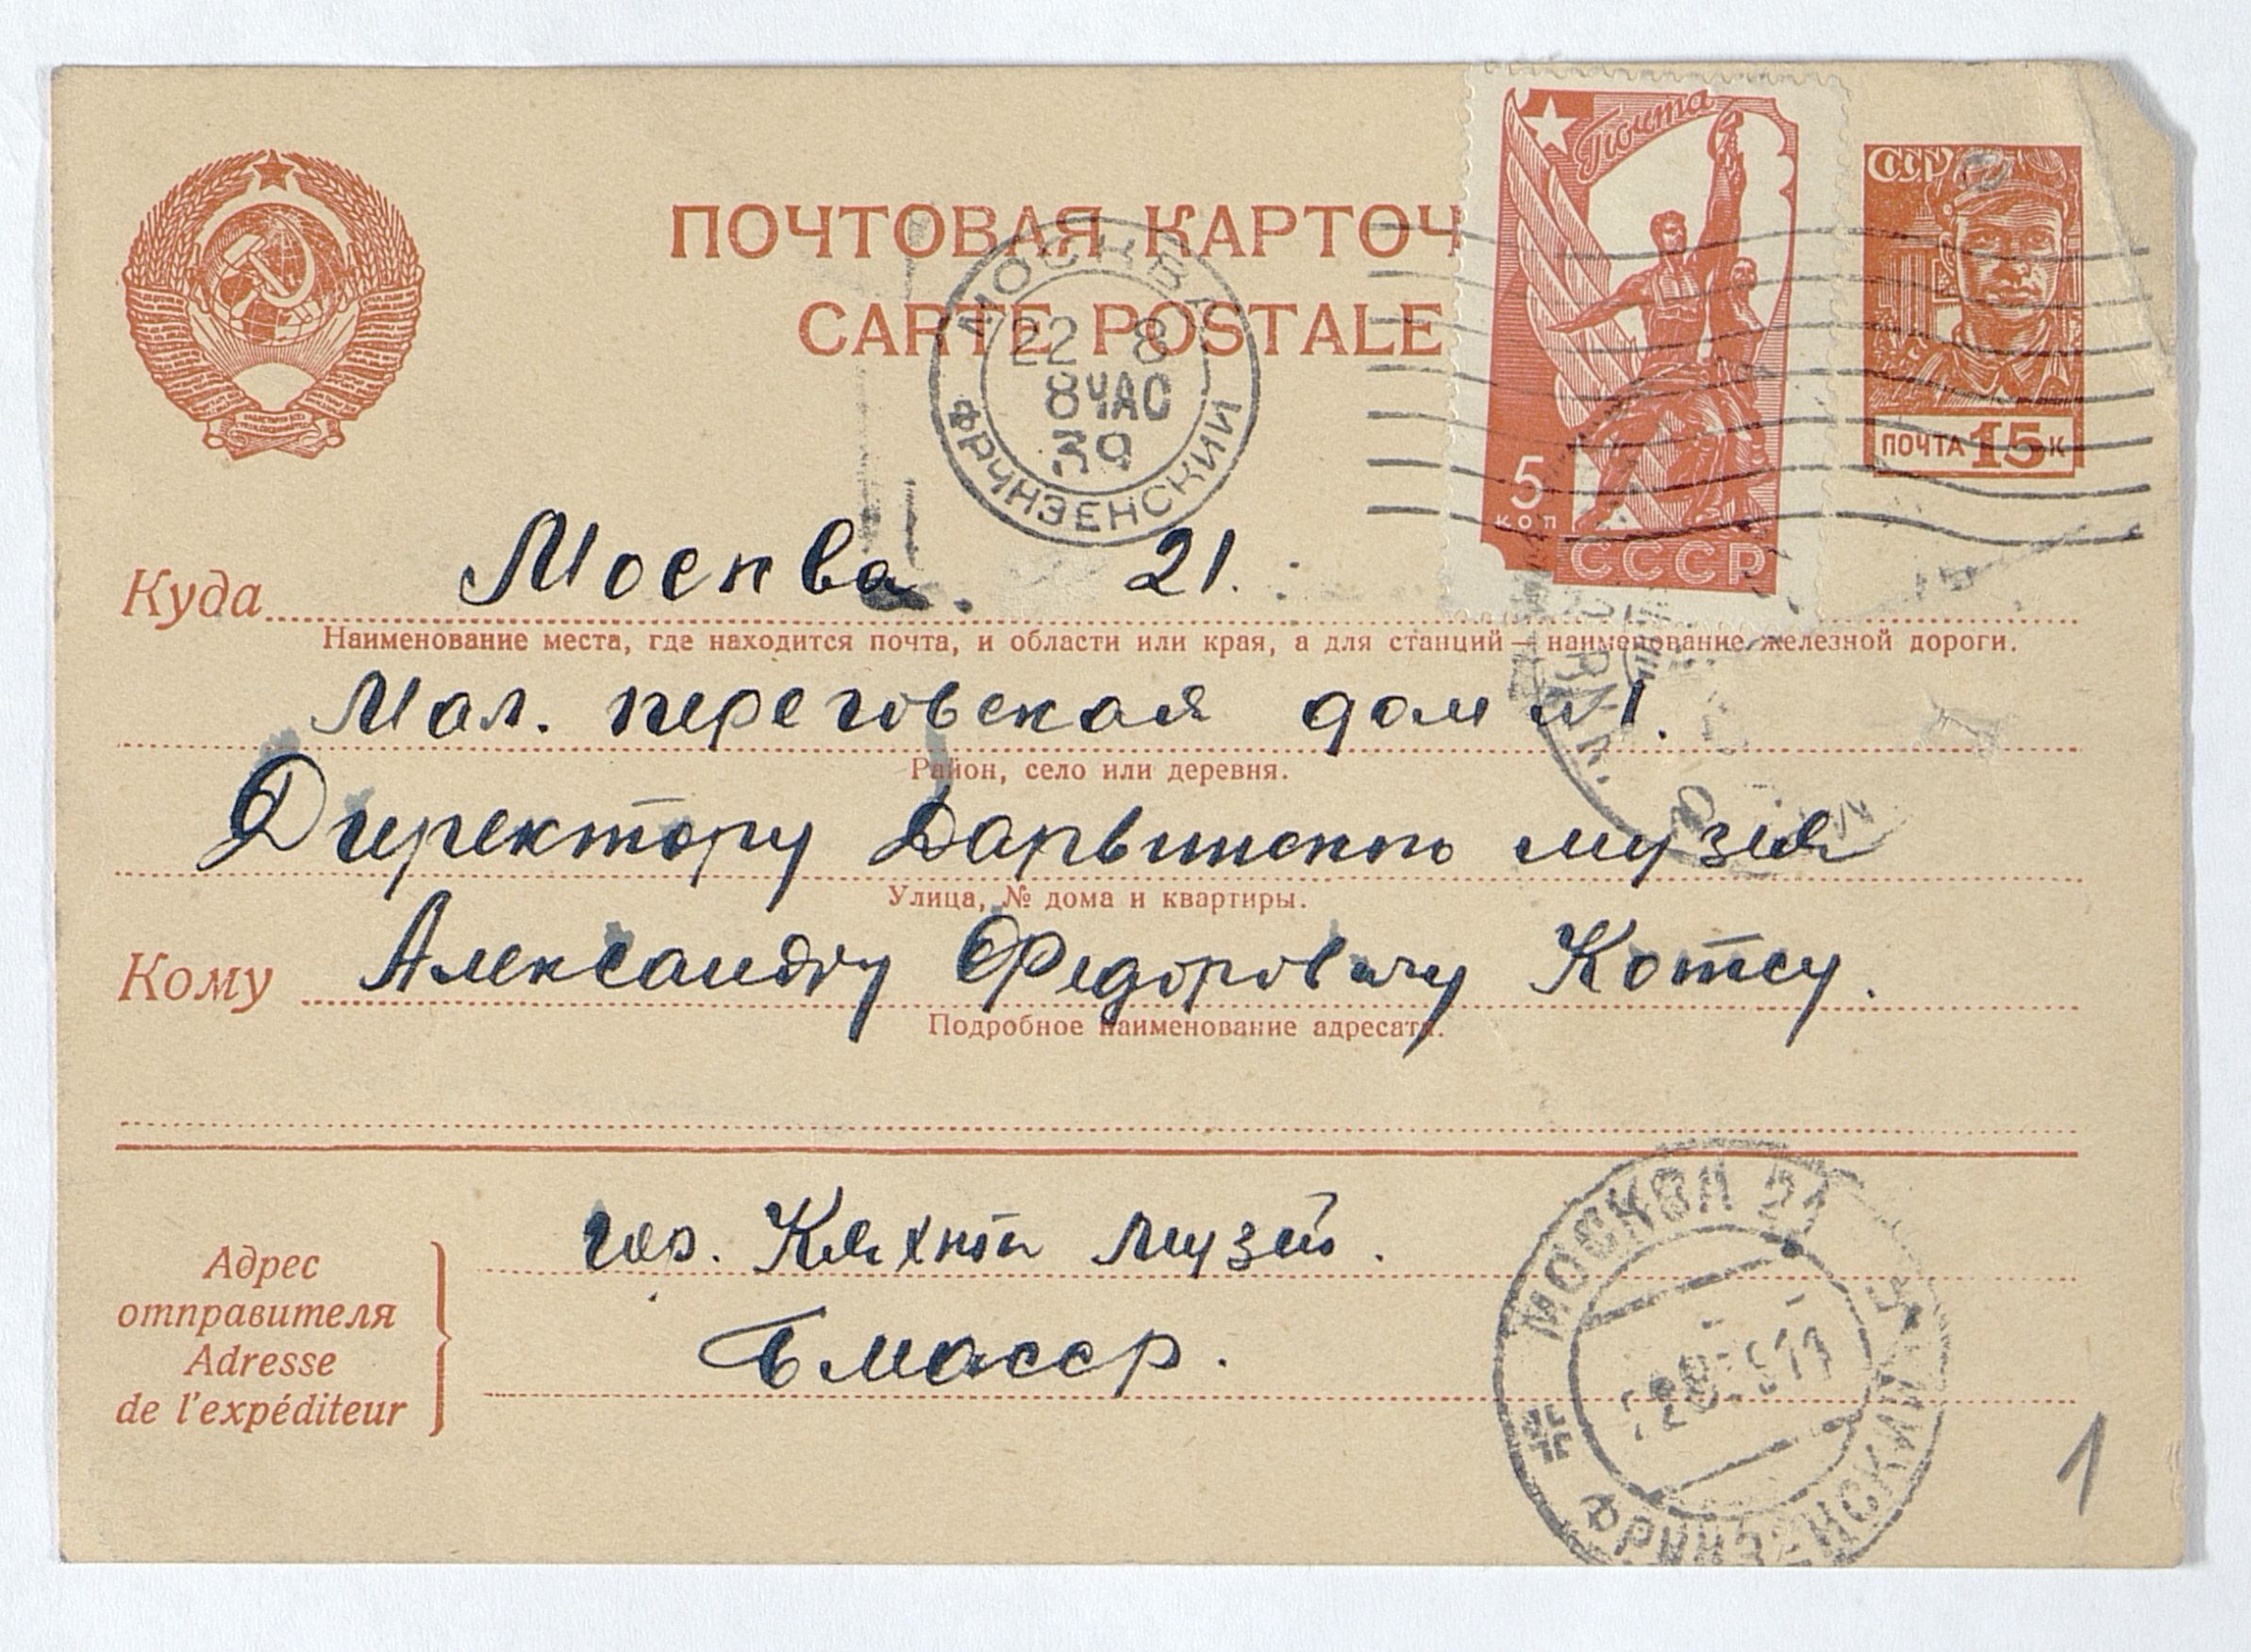 Почта
СССР
ПОЧТОВАЯ КАРТОЧ
CARTE POSTALE
МОСКВА
22 8
8 ЧАС
39
ФРУНЗЕНСКИЙ
5
коп
СССР
ПОЧТА 15 К
Куда Москва 21.
Наименование места, где находится почта, и области или края, а для станций — наименование железной дороги.
Мал. переговская дом №1.
Район, село или деревня.
Директору Дарвинского музея
Улица, № дома и квартиры.
Кому Александру Федоровичу Котсу.
Подробное наименование адресата.
Адрес
отправителя
Adresse
de l'expéditeur
гор. Кяхта Музей.
БМАССР.
МОСКВА 21
ФРУНЗЕНСКИЙ
1